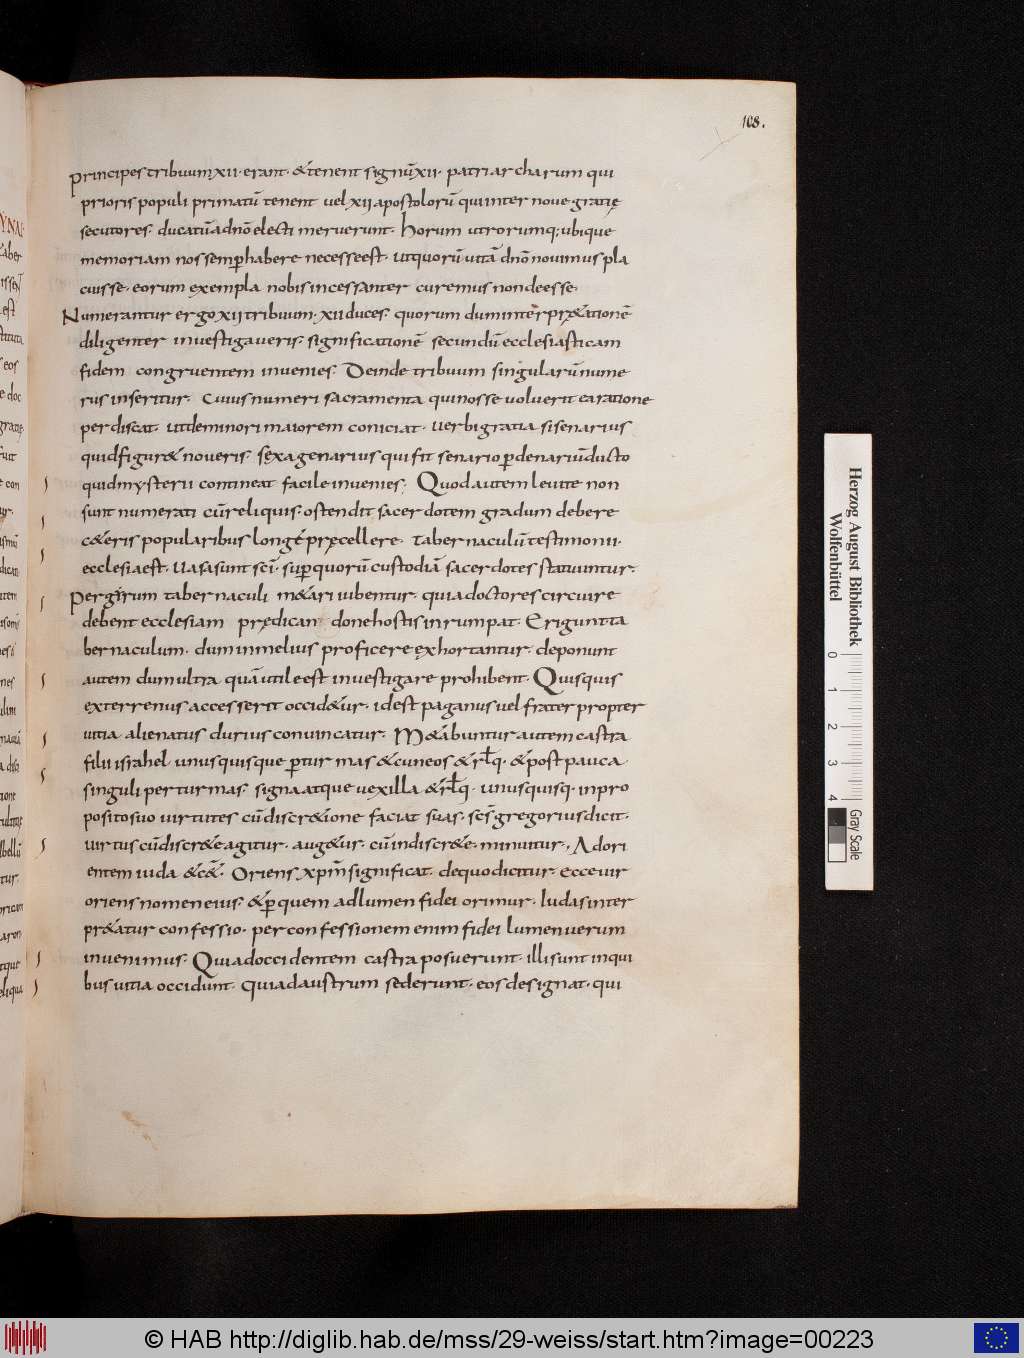 108.
principes tribuum xii· erant· & tenent signū xii· patriarcharum qui
prioris populi primatū tenent vel xii apostolorū qui inter nove gratię
secutores· ducatū a dn̄o electi meruerunt· horum utrorumq; ubique
memoriam nos semp habere necesse est· ut quorū vitā dn̄o novimus pla
cuisse· eorum exempla nobis incessanter curemus non deesse·
Numerantur ergo xii tribuum· xii duces· quorum dum interpr&ationē
diligenter investigaveris· significationē secundū ecclesiasticam
fidem congruentem invenies· Deinde tribuum singularū nume
rus inseritur· cuius numeri sacramenta qui nosse voluerit ea ratione
perdiscat· ut de minori maiorem coniciat· verbi gratia si senarius
quid figur& noveris· sexagenarius qui fit senario p denariū ducto
quid mysterii contineat facile invenies· Quod autem levite non
sunt numerati cū reliquis· ostendit sacerdotem gradum debere
c&eris popularibus longe pręcellere· Tabernaculū testimonii·
ecclesia est· vasa sunt sc̄i· sup quorū custodiā sacerdotes statuuntur·
Per girum tabernaculi m&ari iubentur· quia doctores circuire
debent ecclesiam prędican done hostis inrumpat· Erigunt ta
bernaculum· dum in melius proficere exhortantur· deponunt
autem dum ultra quā utile est investigare prohibent· Quisquis
exterrenus accesserit occid&ur· id est paganus vel frater propter
vitia alienatus durius convincatur· M&abuntur autem castra
filii israhel unusquisque p turmas & cuneos & rl̄q· & post pauca
singuli per turmas· signa atque vexilla & rl̄q· unusquisq· in pro
posito suo virtutes cū discr&ione faciat suas· sc̄s gregorius dicit·
virtus cū discr&e agitur· aug&ur· cū indiscr&e· minuitur· Ad ori
entem iuda &c&· Oriens xpm̄ significat· de quo dicitur· Ecce vir
oriens nomen eius· & p quem ad lumen fidei orimur· Iudas inter
pr&atur confessio· per confessionem enim fidei lumen verum
invenimus· Qui ad occidentem castra posuerunt· illi sunt in qui
bus vitia occidunt· qui ad austrum sederunt· eos designat· qui
Herzog August Bibliothek
Wolfenbüttel
0 1 2 3 4
Gray Scale
© HAB http://diglib.hab.de/mss/29-weiss/start.htm?image=00223